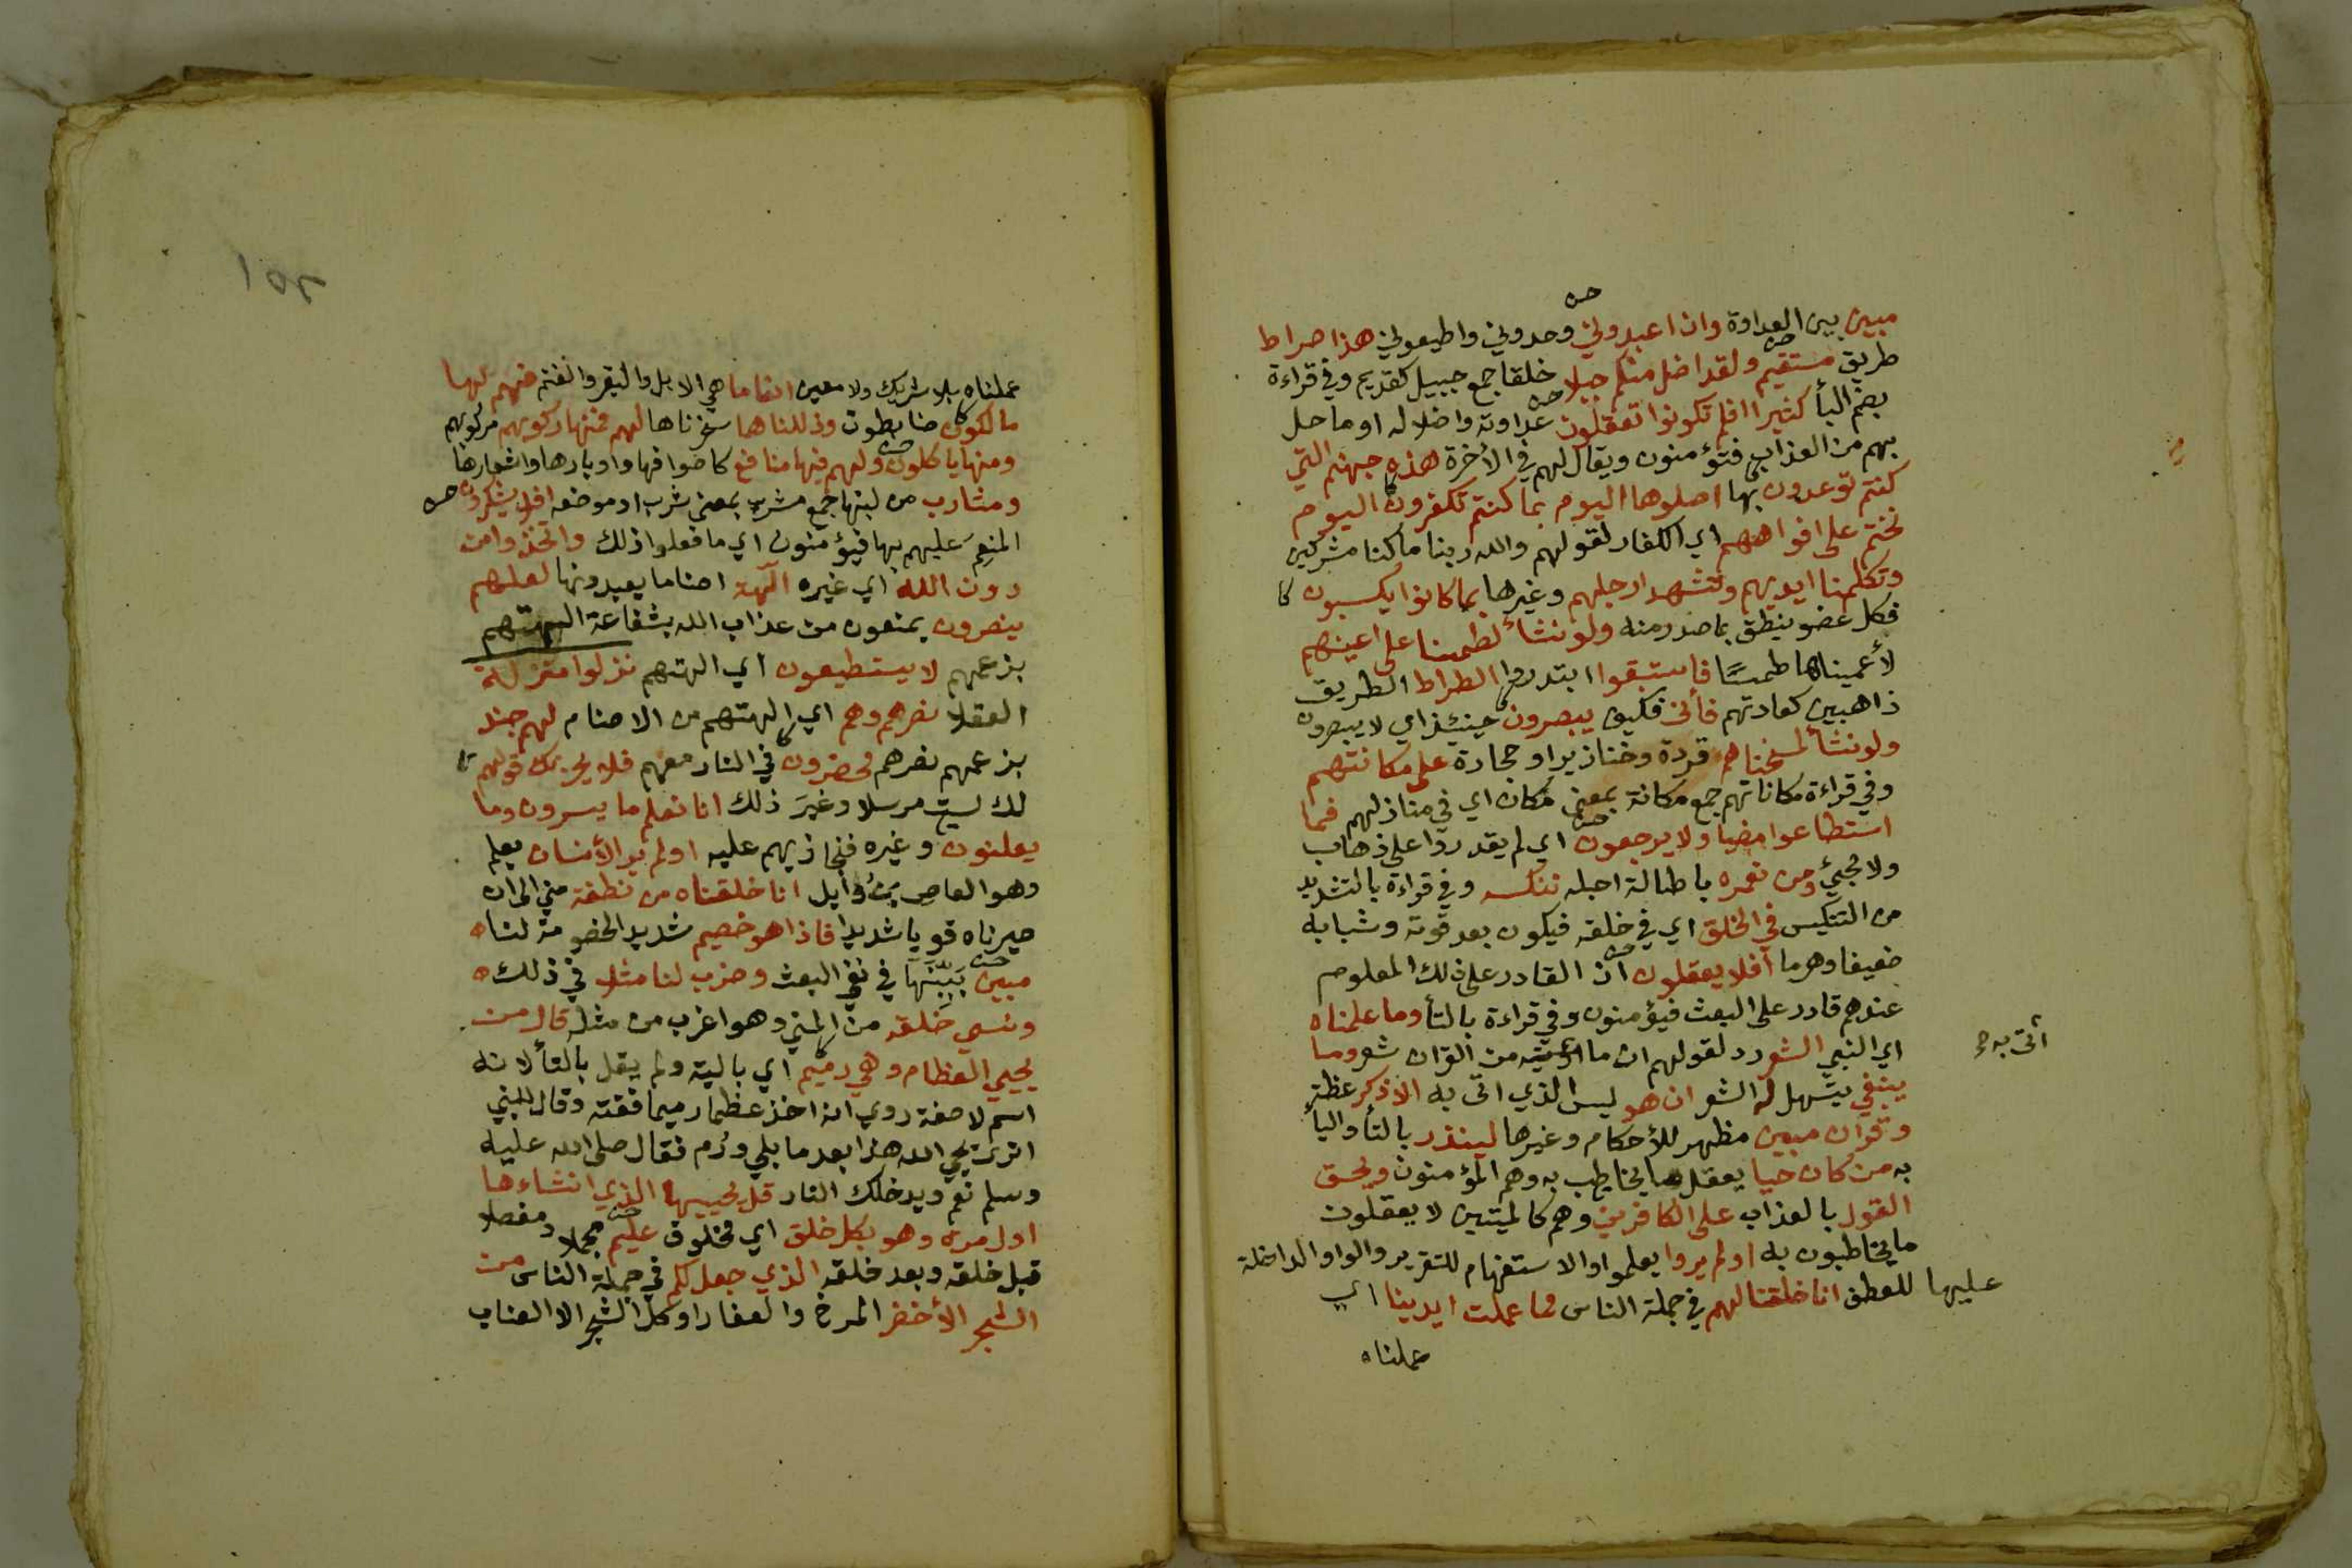 مبين بين العداوة وان اعبدوني وحدوني واطيعوني هذا صراط
طريق مستقيم ولقد اضل منكم جبلا خلقا جمع جبيل كقديم وفي قراءة
بضم البأ كثيرا افلم تكونوا تعقلون عداوته واضلاله او ما حل
بهم من العذاب فتؤمنون ويقال لهم في الأخرة هذه جهنم التي
كنتم توعدون بها اصلوها اليوم بما كنتم تكفرون اليوم
نختم على افواههم اي الكفار لقولهم والله ربنا ما كنا مشركين
وتكلمنا ايديهم وتشهد ارجلهم وغيرها بما كانوا يكسبون
فكل عضو ينطق بما صدر منه ولو نشأ لطمسنا على اعينهم
لأعميناها طمسًا فاستبقوا ابتدروا الطراط الطريق
ذاهبين كعادتهم فأنى فكيف يبصرون حينئذ اي لا يبصرون
ولو نشأ لمسخناهم قردة وخنازير او حجارة على مكانتهم
وفي قراءة مكاناتهم جمع مكانة بمعنى مكان اي في منازلهم فما
استطاعوا مضيا ولا يرجعون اي لم يقدروا على ذهاب
ولا مجيئ ومن نعمره باطالة اجله ننكسه وفي قراءة بالتشديد
من التنكيس في الخلق اي في خلقه فيكون بعد قوته وشبابه
ضعيفا وهرما أفلا يعقلون ان القادر على ذلك المعلوم
عندهم قادر على البعث فيؤمنون وفي قراءة بالتأ وما علمناه
اي النبي الشعر رد لقولهم ان ما من القران شعر وما
أتى به
ينبغي يتسهل له الشعر ان هو ليس الذي اتى به الا ذكر عظة
وقران مبين مظهر للأحكام وغيرها لينذر بالتأ واليأ
به من كان حيا يعقل ما يخاطب به وهم المؤمنون ويحق
القول بالعذاب على الكافرين وهم كالميتين لا يعقلون
ما يخاطبون به اولم يروا يعلموا والاستفهام للتقرير والواو الداخلة
عليها للعطف انا خلقنا لهم في جملة الناس مما عملت ايدينا اي
عملناه
١٥٢
عملناه بلا شريك ولا معين انعاما هي الابل والبقر والغنم فهم لها
مالكون ضابطون وذللناها سخرناها لهم فمنها ركوبهم مركوبهم
ومنها ياكلون ولهم فيها منافع كاصوافها واوبارها واشعارها
ومشارب من لبنها جمع مشرب بمعنى شرب او موضعه افلا يشكرون
المنعم عليهم بها فيؤمنون اي ما فعلوا ذلك واتخذوا من
دون الله اي غيره آلهة اصناما يعبدونها لعلهم
ينصرون يمنعون من عذاب الله بشفاعة الهتهم
بزعمهم لا يستطيعون اي الهتهم نزلوا منزلة
العقلا نصرهم وهم اي الهتهم من الاصنام لهم جند
بزعمهم نصرهم محضرون في النار معهم فلا يحزنك قولهم
لك لست مرسلا وغيرَ ذلك انا نعلم ما يسرون وما
يعلنون وغيره فنجازيهم عليه اولم ير الأنسان يعلم
وهو العاصي بن وأيل انا خلقناه من نطفة مني الى ان
صيرناه قويا شديدا فاذا هو خصيم شديد الخصومة لنا
مبين بَيِّنَها في نفي البعث وضرب لنا مثلا في ذلك
ونسي خلقه من المني وهو اغرب من مثله قال من
يحيي العظام وهي رميم اي بالية ولم يقل بالتأ لانه
اسم لا صفة روي انه اخذ عظما رميما ففته وقال للنبي
اترى يحيي الله هذا بعد ما بلي ورم فقال صلى الله عليه
وسلم نعم ويدخلك النار قل يحييها الذي انشاءها
اول مرة وهو بكل خلق اي مخلوق عليم مجملا ومفصلا
قبل خلقه وبعد خلقه الذي جعل لكم في جملة الناس من
الشجر الأخضر المرخ والعفار او كل الشجر الا العناب